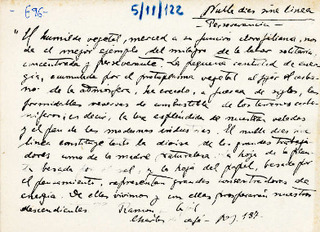 E95-
5/11/122
Nulle dies sine linea
Perseverancia -
"El humilde vegetal, merced a su función clorofiliana, nos
da el mejor ejemplo del milagro de la labor solitaria,
concentrada y perseverante. La pequeña cantidad de ener-
gía, acumulada por el protoplasma vegetal al fijar el carbo-
no de la atmósfera, ha creado, a fuerza de siglos, las
formidables reservas de combustible de los terrenos carbo-
níferos; es decir, la luz espléndida de nuestras veladas
y el pan de las modernas industrias. El nulle dies sine
linea constituye tanto la divisa de los grandes trabaja-
dores como de la madre naturaleza. La hoja de la planta
besada por el sol, y la hoja del papel, besada por
el pensamiento, representan grandes concentradores de
energía. De ellas vivimos y con ellas prosperarán nuestros
descendientes. Ramón
Charlas café pag. 187.